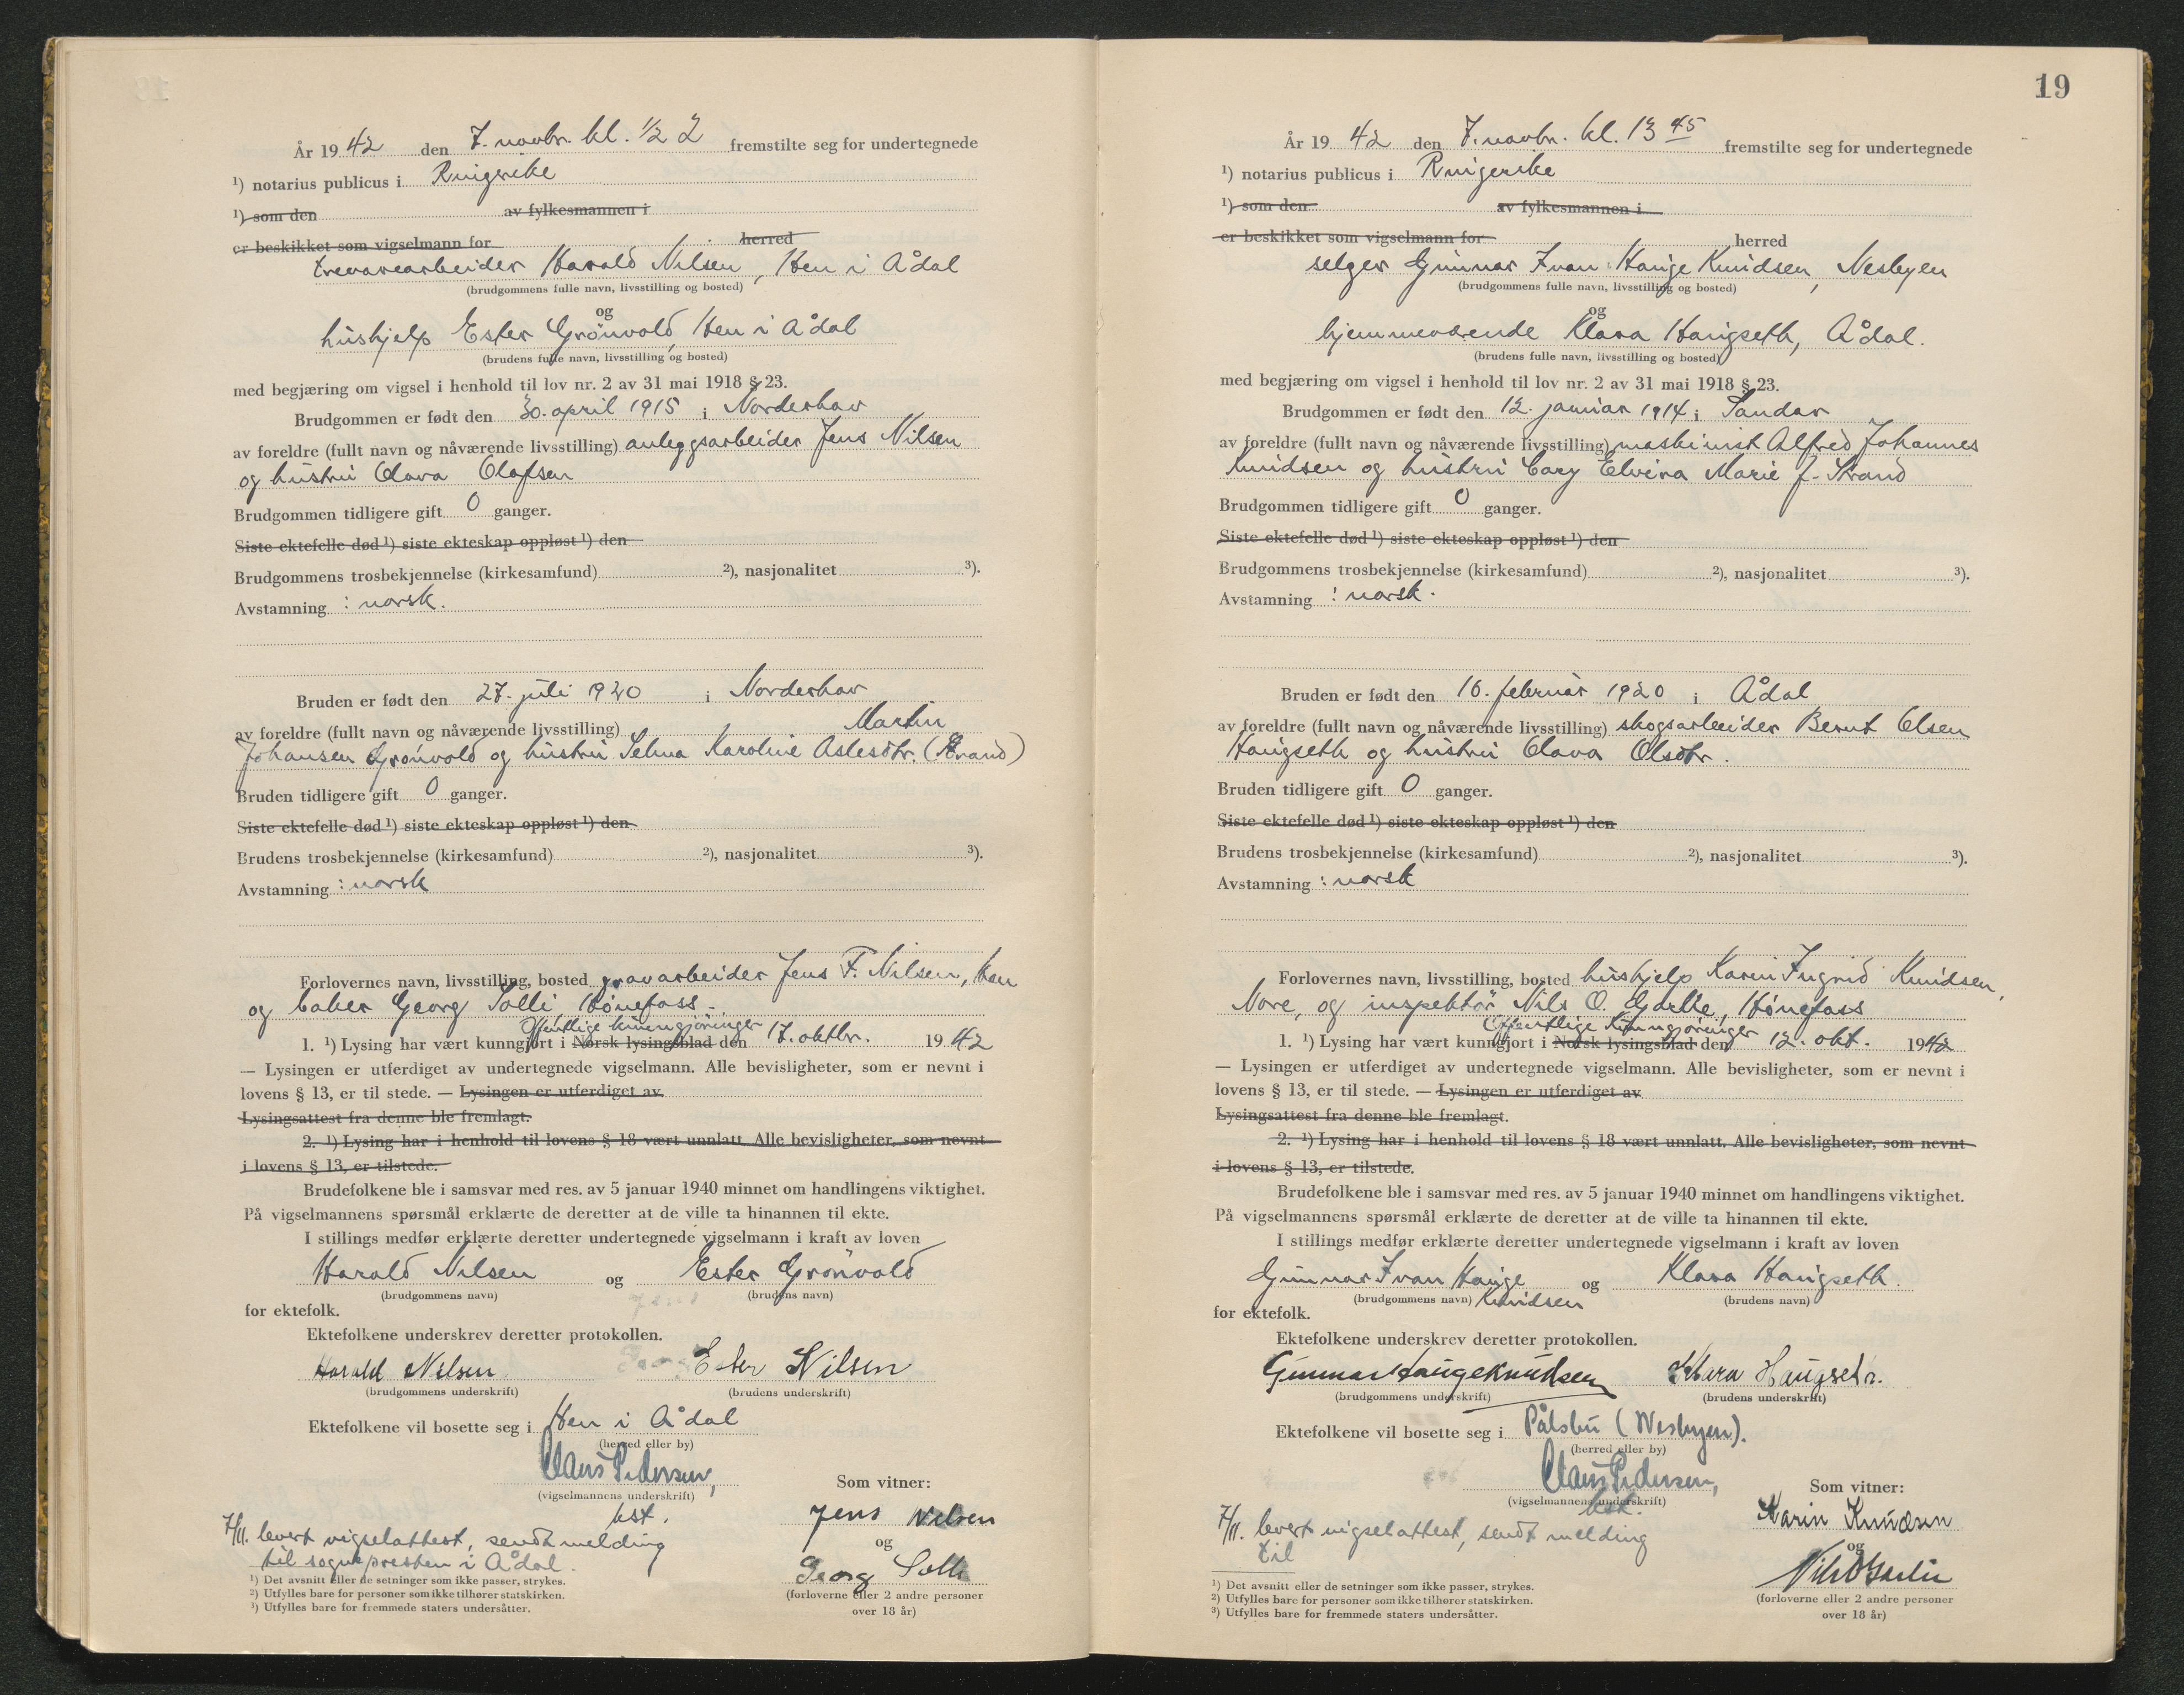 År 19 42 den 7. novbr. kl. 1/2 2 fremstilte seg for undertegnede
¹) notarius publicus i Ringerike
¹) som den av fylkesmannen i
er beskikket som vigselmann for herred
trevarearbeider Harald Nilsen, Hen i Ådal
(brudgommens fulle navn, livsstilling og bosted)
og
hushjelp Ester Grönvold, Hen i Ådal
(brudens fulle navn, livsstilling og bosted)
med begjæring om vigsel i henhold til lov nr. 2 av 31 mai 1918 § 23.
Brudgommen er født den 30. april 1915 i Norderhov
av foreldre (fullt navn og nåværende livsstilling) anleggsarbeider Jens Nilsen
og hustru Olava Olafsen
Brudgommen tidligere gift 0 ganger.
Siste ektefelle død ¹) siste ekteskap oppløst ¹) den
Brudgommens trosbekjennelse (kirkesamfund) ²), nasjonalitet ³).
Avstamning : norsk.
Bruden er født den 27. juli 1920 i Norderhov
av foreldre (fullt navn og nåværende livsstilling) Martin
Johansen Grönvold og hustru Selma Karoline Aslesdtr. (Strand)
Bruden tidligere gift 0 ganger.
Siste ektefelle død ¹) siste ekteskap oppløst ¹) den
Brudens trosbekjennelse (kirkesamfund) ²), nasjonalitet ³).
Avstamning : norsk
Forlovernes navn, livsstilling, bosted gravarbeider Jens F. Nilsen, Hen
og baker Georg Solli Hönefoss.
Offentlige kunngjöringer
1. ¹) Lysing har vært kunngjort i Norsk lysingsblad den 17. oktbr. 19 42
— Lysingen er utferdiget av undertegnede vigselmann. Alle bevisligheter, som er nevnt i
lovens § 13, er til stede. — Lysingen er utferdiget av
Lysingsattest fra denne ble fremlagt.
2. ¹) Lysing har i henhold til lovens § 18 vært unnlatt. Alle bevisligheter, som nevnt
i lovens § 13, er tilstede.
Brudefolkene ble i samsvar med res. av 5 januar 1940 minnet om handlingens viktighet.
På vigselmannens spørsmål erklærte de deretter at de ville ta hinannen til ekte.
I stillings medfør erklærte deretter undertegnede vigselmann i kraft av loven
Harald Nilsen og Ester Grönvold
(brudgommens navn) (brudens navn)
for ektefolk.
Ektefolkene underskrev deretter protokollen.
Harald Nilsen Ester Nilsen
(brudgommens underskrift) (brudens underskrift)
Ektefolkene vil bosette seg i Hen i Ådal
(herred eller by)
Claus Pedersen, Som vitner:
(vigselmannens underskrift)
bst. Jens Nilsen
7/11. levert vigselattest, sendt melding og
til sognepresten i Ådal. Georg Solli
¹) Det avsnitt eller de setninger som ikke passer, strykes.
²) Utfylles bare for personer som ikke tilhører statskirken. (forloverne eller 2 andre personer
³) Utfylles bare for fremmede staters undersåtter. over 18 år)
19
År 19 42 den 7. novbr. kl. 13 45 fremstilte seg for undertegnede
¹) notarius publicus i Ringerike
¹) som den av fylkesmannen i
er beskikket som vigselmann for herred
selger Gunnar Ivan Hauge Knudsen, Nesbyen
(brudgommens fulle navn, livsstilling og bosted)
og
hjemmeværende Klara Haugseth, Ådal.
(brudens fulle navn, livsstilling og bosted)
med begjæring om vigsel i henhold til lov nr. 2 av 31 mai 1918 § 23.
Brudgommen er født den 12. januar 1914 i Sandar
av foreldre (fullt navn og nåværende livsstilling) maskinist Alfred Johannes
Knudsen og hustru Cary Elvira Marie f. Strand
Brudgommen tidligere gift 0 ganger.
Siste ektefelle død ¹) siste ekteskap oppløst ¹) den
Brudgommens trosbekjennelse (kirkesamfund) ²), nasjonalitet ³).
Avstamning : norsk.
Bruden er født den 16. februar 1920 i Ådal
av foreldre (fullt navn og nåværende livsstilling) skogsarbeider Bernt Olsen
Haugseth og hustru Olava Olsdtr.
Bruden tidligere gift 0 ganger.
Siste ektefelle død ¹) siste ekteskap oppløst ¹) den
Brudens trosbekjennelse (kirkesamfund) ²), nasjonalitet ³).
Avstamning : norsk
Forlovernes navn, livsstilling, bosted hushjelp Karin Ingrid Knudsen,
Nore, og inspektör Nils O. Hönefoss
Offentlige kunngjöringer
1. ¹) Lysing har vært kunngjort i Norsk lysingsblad den 12. okt. 1942
— Lysingen er utferdiget av undertegnede vigselmann. Alle bevisligheter, som er nevnt i
lovens § 13, er til stede. — Lysingen er utferdiget av
Lysingsattest fra denne ble fremlagt.
2. ¹) Lysing har i henhold til lovens § 18 vært unnlatt. Alle bevisligheter, som nevnt
i lovens § 13, er tilstede.
Brudefolkene ble i samsvar med res. av 5 januar 1940 minnet om handlingens viktighet.
På vigselmannens spørsmål erklærte de deretter at de ville ta hinannen til ekte.
I stillings medfør erklærte deretter undertegnede vigselmann i kraft av loven
Gunnar Ivan Hauge og Klara Haugseth.
(brudgommens navn) Knudsen (brudens navn)
for ektefolk.
Ektefolkene underskrev deretter protokollen.
Gunnar Hauge Knudsen Klara Haugseth.
(brudgommens underskrift) (brudens underskrift)
Ektefolkene vil bosette seg i Pålsbu (Nesbyen).
(herred eller by)
Claus Pedersen, Som vitner:
(vigselmannens underskrift)
bst. Karin Knudsen
7/11. levert vigselattest, sendt melding og
til
¹) Det avsnitt eller de setninger som ikke passer, strykes.
²) Utfylles bare for personer som ikke tilhører statskirken. (forloverne eller 2 andre personer
³) Utfylles bare for fremmede staters undersåtter. over 18 år)